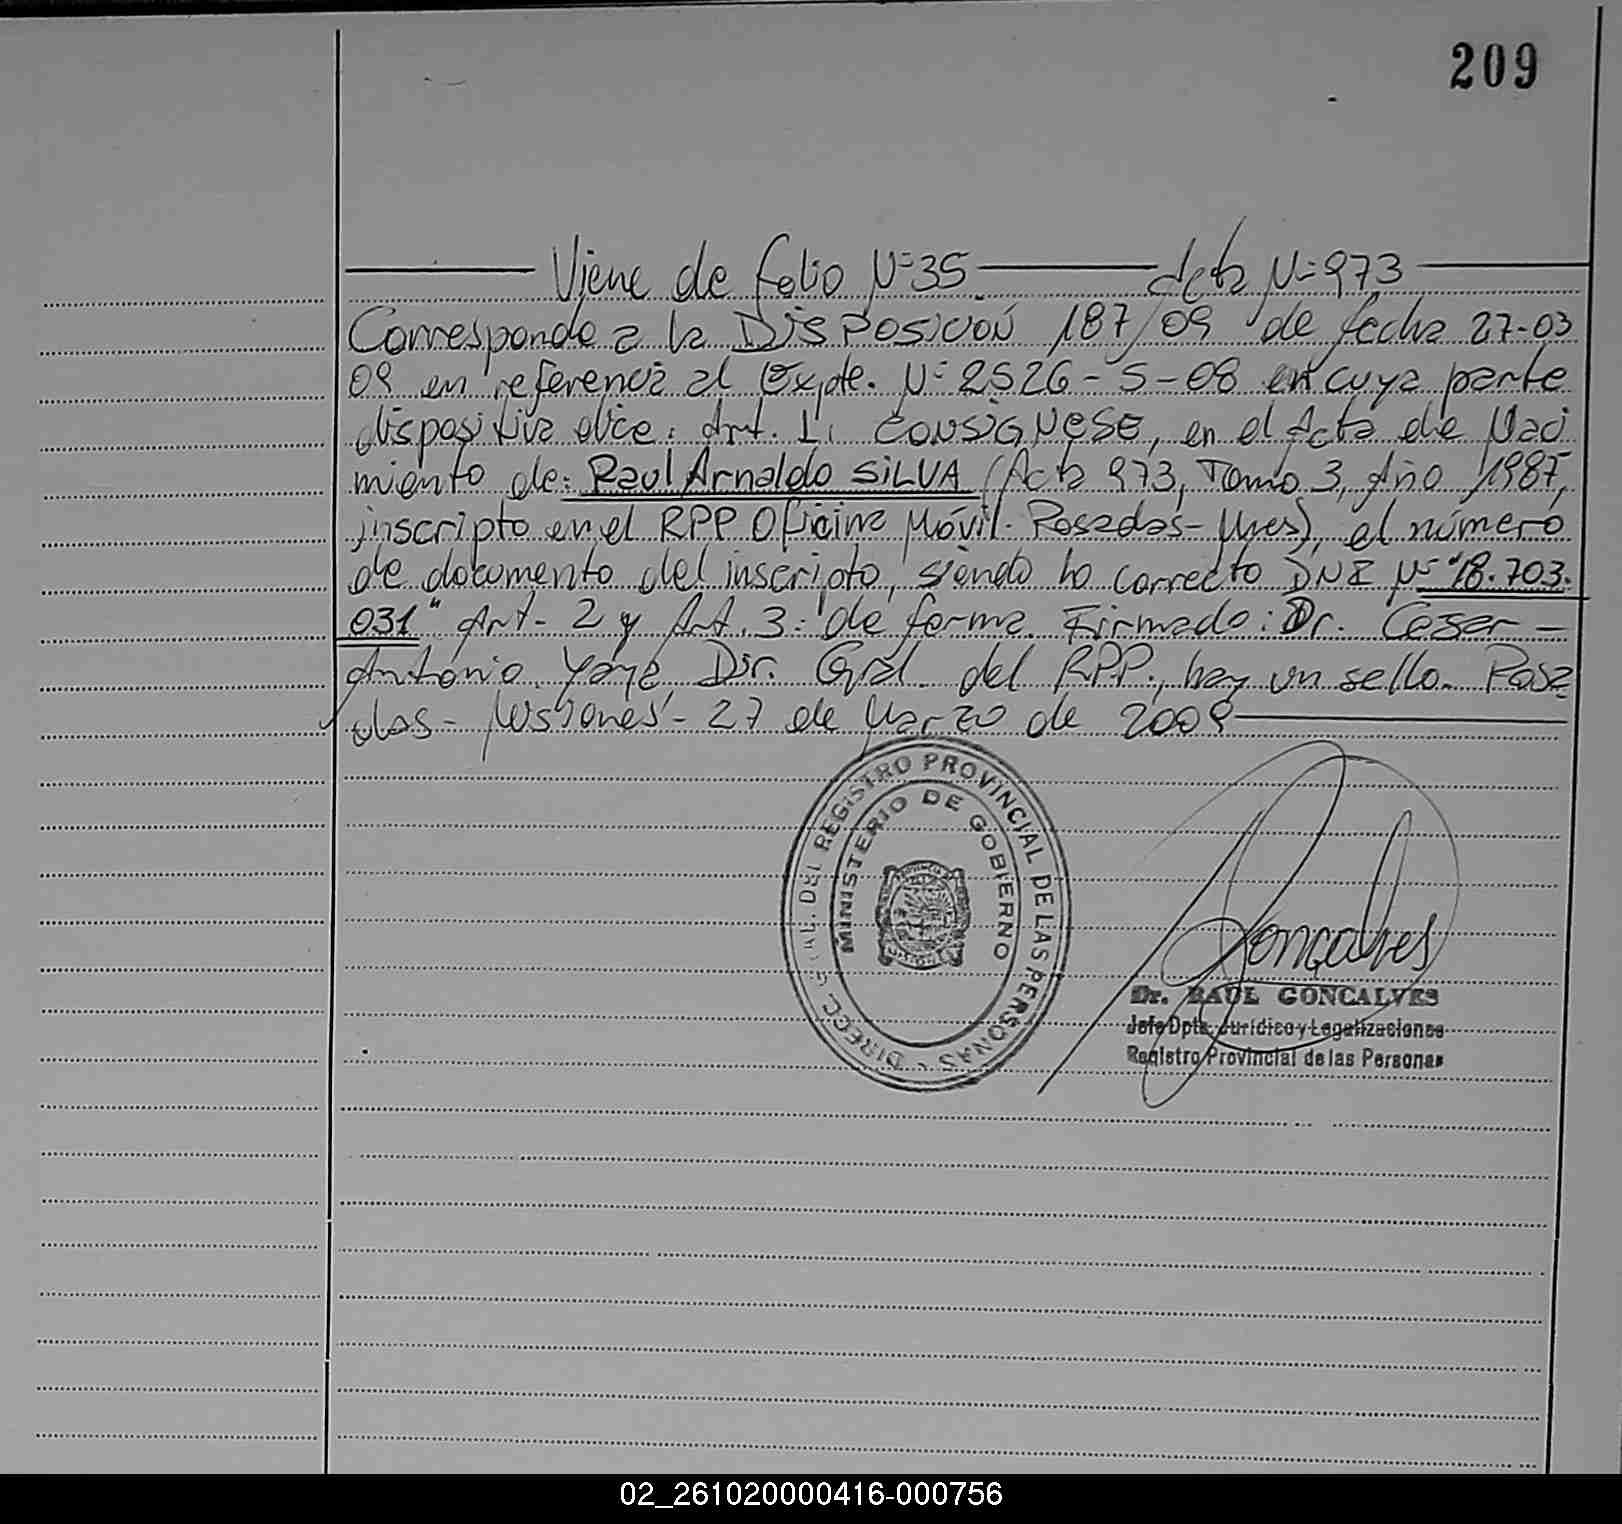 209
Viene de folio Nº 35 Acta Nº 973
Corresponde a la DISPOSICIÓN 187/09 de fecha 27-03
09 en referencia al Expte. Nº 2526-S-08 en cuya parte
dispositiva dice: Art. 1: CONSIGNESE, en el Acta de Naci
miento de: Raul Arnaldo SILVA (Acta 973, Tomo 3, Año 1987,
inscripto en el RPP Oficina Móvil. Posadas-Mnes), el número
de documento del inscripto, siendo lo correcto DNI Nº "18.703.
031" Art. 2 y Art. 3: de forma. Firmado: Dr. Cesar -
Antonio Yaya, Dir. Gral. del RPP., hay un sello. Posa
das - Misiones - 27 de Marzo de 2009
DEL REGISTRO PROVINCIAL DE LAS PERSONAS
MINISTERIO DE GOBIERNO
Goncalves
Dr. RAUL GONCALVES
Jefe Dpto. Jurídico y Legalizaciones
Registro Provincial de las Personas
02_261020000416-000756